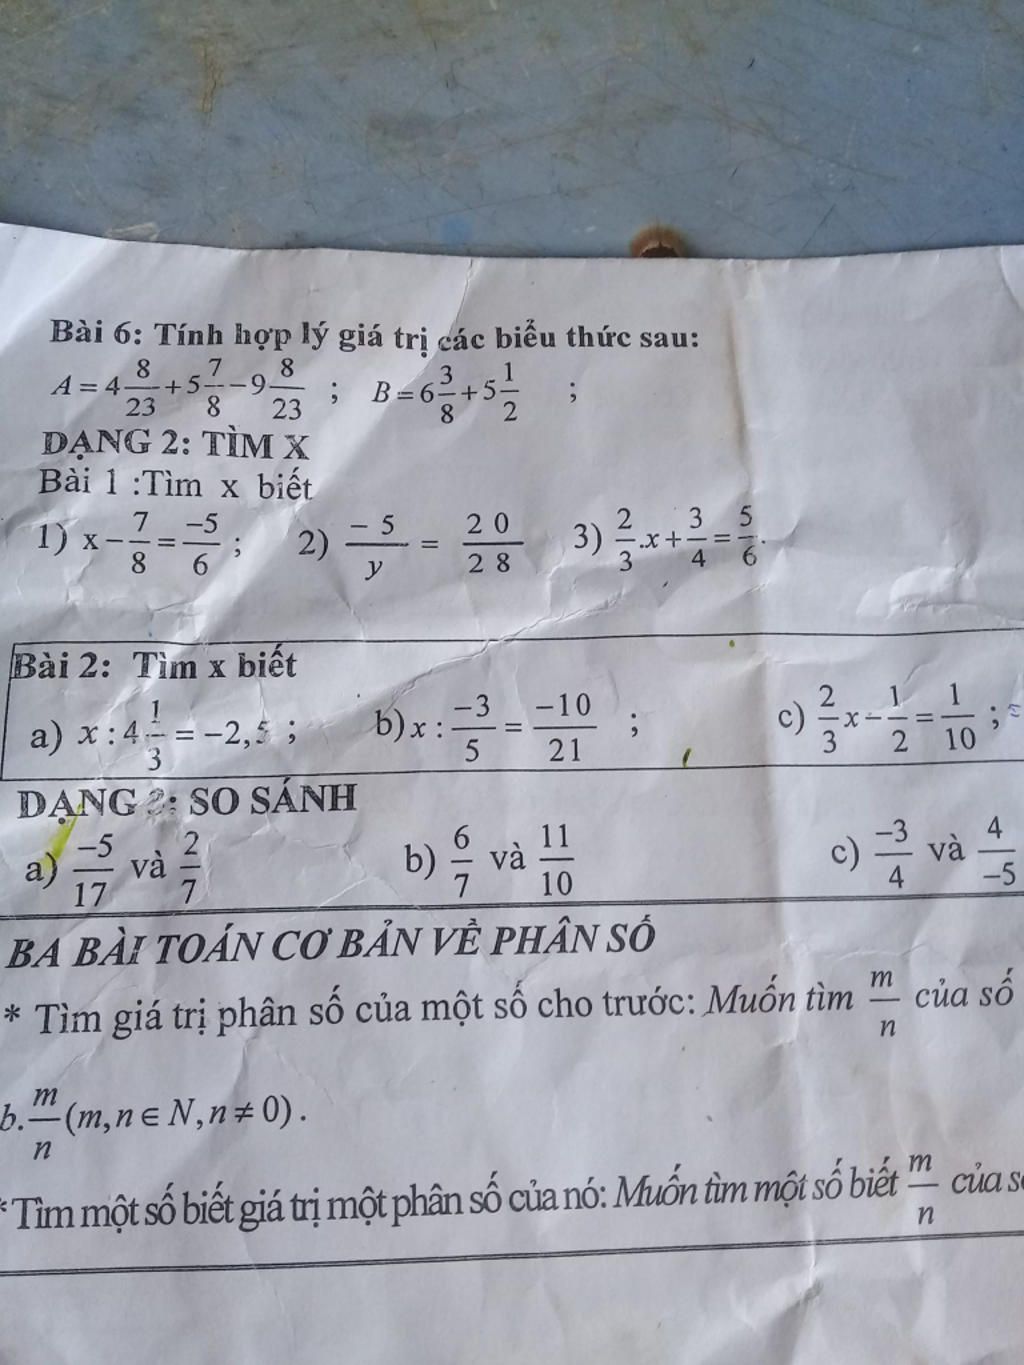 Bài 6: Tính hợp lý giá trị các biểu thức sau:
A = 4 8/23 + 5 7/8 − 9 8/23 ; B = 6 3/8 + 5 1/2 ;
DẠNG 2: TÌM X
Bài 1 :Tìm x biết
1) x − 7/8 = −5/6 ; 2) −5/y = 20/28 3) 2/3 .x + 3/4 = 5/6.
Bài 2: Tìm x biết
a) x : 4 1/3 = −2,5 ; b) x : −3/5 = −10/21 ; c) 2/3 x − 1/2 = 1/10 ;
DẠNG 3: SO SÁNH
a) −5/17 và 2/7 b) 6/7 và 11/10 c) −3/4 và 4/−5
BA BÀI TOÁN CƠ BẢN VỀ PHÂN SỐ
* Tìm giá trị phân số của một số cho trước: Muốn tìm m/n của số
b. m/n (m, n ∈ N, n ≠ 0) .
* Tìm một số biết giá trị một phân số của nó: Muốn tìm một số biết m/n của